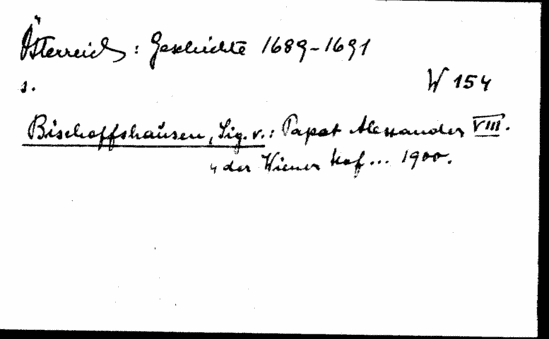 Österreich: Geschichte 1689-1691
s.
W 154
Bischoffshausen, Sig. v.: Papst Alexander VIII.
u der Wiener Hof... 1900.